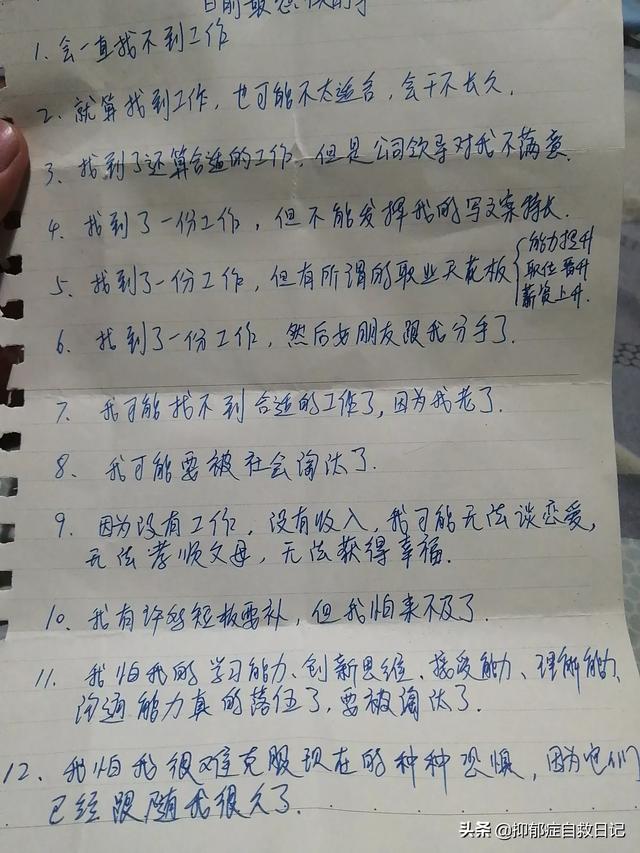 目前最恐惧的事
1. 会一直找不到工作
2. 就算找到工作，也可能不太适合，会干不长久。
3. 找到了还算合适的工作，但是公司领导对我不满意。
4. 找到了一份工作，但不能发挥我的写文案特长。
5. 找到了一份工作，但有所谓的职业天花板
能力提升
职位晋升
薪资上升.
6. 找到了一份工作，然后女朋友跟我分手了.
7. 我可能找不到合适的工作了，因为我老了.
8. 我可能要被社会淘汰了.
9. 因为没有工作，没有收入，我可能无法谈恋爱，
无法孝顺父母，无法获得幸福.
10. 我有许多短板要补，但我怕来不及了.
11. 我怕我的学习能力、创新思维、接受能力、理解能力、
沟通能力真的落伍了，要被淘汰了.
12. 我怕我很难克服现在的种种恐惧，因为它们
已经跟随我很久了.
头条 @抑郁症自救日记